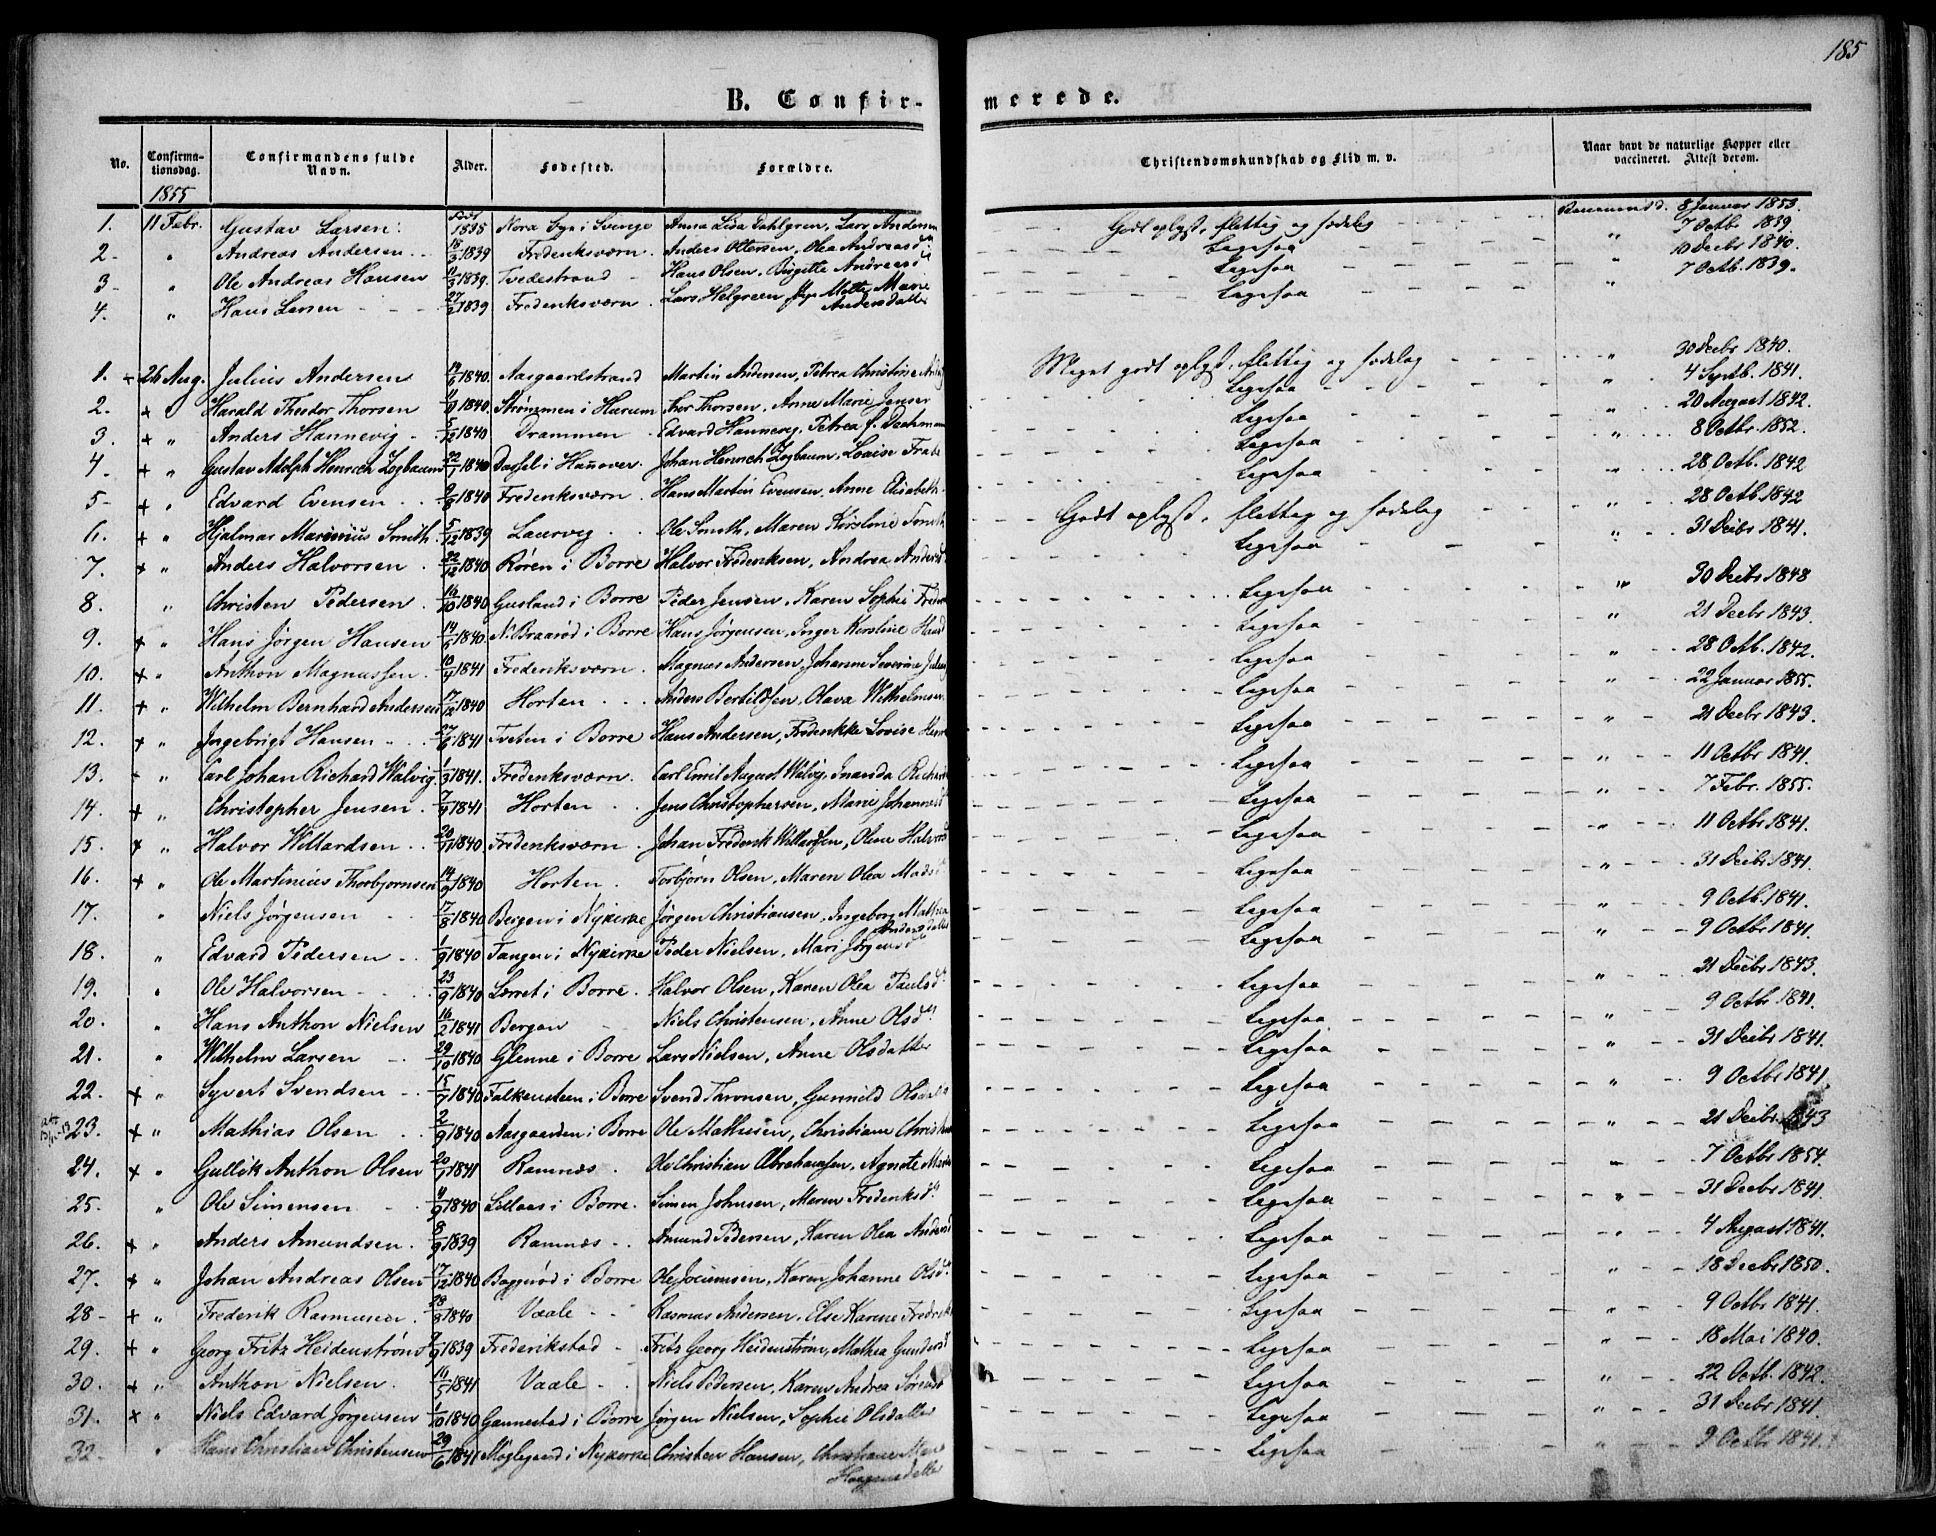 185
B. Confirmerede.
No. Confirmationsdag. Confirmandens fulde Navn. Alder. Fødested. Forældre. Christendomskundskab og Flid m. v. Naar havt de naturlige Kopper eller vaccineret. Attest derom.
1855
1. 11 Febr. Gustav Larsen Født 1835 Nora Sogn i Sverige Anna Lisa Dahlgren, Lars Andersen Godt oplyst, flittig og sædelig 8 Januar 1853.
2 - " Andreas Andersen 18/3 1839 Frederiksværn Anders Ottersen, Olea Andreasd. Ligesaa " 7 Octb. 1839.
3 - " Ole Andreas Hansen 11/3 1839. Tvedestrand Hans Olsen, Birgitte Andreasd. Ligesaa 10 Decbr 1840.
4. " Hans Larsen 27/2 1839 Frederiksværn Lars Helgreen, Mette Marie Andersdatter Ligesaa " 7 Octb. 1839.
1. + 26 Aug. Julius Andersen 14/6 1840. Aasgaardstrand Martin Andersen, Petrea Christine Meget godt oplyst, flittig og sædelig " 30 Decbr 1840.
2. + " Harald Theodor Thorsen 11/9 1840. Strømmen i Hurum Thor Thorsen, Anne Marie Jenser Ligesaa " 4 Septb. 1841.
3. + " Anders Hannevig 5/12 1840 Drammen Edvard Hannevig, Petrea J. Dechmann Ligesaa " 20 August 1842.
4. + " Gustav Adolph Henrich Zogbaum 22/1 1840 Dassel i Hannover Johan Henrich Zogbaum, Louise Ligesaa " 8 Octbr. 1852.
5 - + " Edvard Evensen 9/8 1840 Frederiksværn Hans Martin Evensen, Anne Elisabeth Ligesaa " 28 Octb. 1842
6. + " Hjalmar Marinius Smith 5/12 1839 Laurvig Ole Smith, Maren Kirstine Smith Godt oplyst, flittig og sædelig " 28 Octb. 1842
7. + " Anders Halvorsen 22/12 1840 Røren i Borre Halvor Frederiksen, Andrea Andersd Ligesaa " 31 Decbr 1841.
8. " Christen Pedersen 16/10 1840 Gusland i Borre Peder Jensen, Karen Sophie Ligesaa " 30 Decbr 1848
9. + " Hans Jørgen Hansen 14/6 1840. N. Braarød i Borre Hans Jørgensen, Inger Kirstine Ligesaa " 21 Decbr 1843.
10. + " Anthon Magnussen 10/9 1841 Frederiksværn Magnus Andersen, Johanne Severine Ligesaa " 28 Octb. 1842.
11. + " Wilhelm Bernhard Andersen 17/12 1840 Horten Anders Bertildsen, Olava Wilhelmsen Ligesaa " 22 Januar 1855.
12. + " Ingebrigt Hansen 27/6 1841 Tveten i Borre Hans Andersen, Frederikke Lovise Ligesaa " 21 Decbr 1843.
13. + " Carl Johan Richard Walvig 1/3 1841. Frederiksværn Carl Emil August Walvig, Richard Ligesaa " 11 Octbr 1841.
14. + " Christopher Jensen 7/9 1841 Horten Jens Christophersen, Marie Johannesd Ligesaa " 7 Febr. 1855.
15. + " Halvor Willardsen 20/1 1840. Frederiksværn Johan Frederik Willardsen, Oline Halvorsd Ligesaa " 11 Octbr 1841.
16. + " Ole Martinius Thorbjørnsen 14/9 1840 Horten Torbjørn Olsen, Maren Olea Madsd Ligesaa " 31 Decbr 1841.
17. " Niels Jørgensen 17/8 1840 Bergen i Nykirke Jørgen Christiansen, Ingeborg Mathea Andersdatter Ligesaa " 9 Octb. 1841.
18. " Edvard Pedersen 1/9 1840 Tangen i Nykirke Peder Nielsen, Mari Jørgensd Ligesaa " 9 Octbr 1841.
19. " Ole Halvorsen 23/9 1840 Lerret i Borre. Halvor Olsen, Karen Olea Paulsd. Ligesaa " 21 Decbr 1843.
20. " Hans Anthon Nielsen 16/2 1841 Bergan Niels Christensen, Anne Olsd. Ligesaa " 9 Octbr 1841.
21. " Wilhelm Larsen 29/10 1840 Glenne i Borre Lars Nielsen, Anne Olsdatter Ligesaa " 31 Decbr 1841.
22. + " Syvert Svendsen 15/7 1840 Falkensteen i Borre Svend Thronsen, Gunnild Olsdatt Ligesaa " 9 Octbr 1841.
23. + " Mathias Olsen 2/9 1840 Aasgaarden i Borre Ole Mathisen, Christiane Ligesaa " 21 Decbr 1843
24. + " Gullik Anthon Olsen 20/1 1841 Ramnæs Ole Christian Abrahamsen, Agnete Ligesaa " 7 Octbr 1854.
25. " Ole Simensen 4/9 1840 Lillaas i Borre. Simen Johnsen, Maren Frederiksd. Ligesaa " 31 Decbr 1841.
26. + " Anders Amundsen 8/9 1839 Ramnæs Amund Pedersen, Karen Olea Andersd Ligesaa " 4 August 1841.
27. + " Johan Andreas Olsen 17/12 1840 Baggerød i Borre Ole Jocumsen, Karen Johanne Olsd. Ligesaa " 18 Decbr 1850.
28 - + " Frederik Rasmussen 28/8 1840 Vaale Rasmus Andersen, Else Karine Ligesaa " 9 Octbr 1841.
29. + " Georg Fritz Heidenstrøm 2/9 1839 Frederikstad Fritz Georg Heidenstrøm, Mathea Gundersd Ligesaa " 18 Mai 1840.
30. + " Anthon Nielsen 16/5 1841 Vaale Niels Pedersen, Karen Andrea Sørensd Ligesaa " 22 Octb. 1842.
31. + " Niels Edvard Jørgensen 1/10 1840 Gannestad i Borre Jørgen Nielsen, Sophie Olsdatter Ligesaa " 31 Decbr 1841.
32 - " Hans Christian Christensen 29/6 1841 Møglegaard i Nykirke Christen Hansen, Christiane Marie Haagensdatter Ligesaa " 9 Octbr 1841.